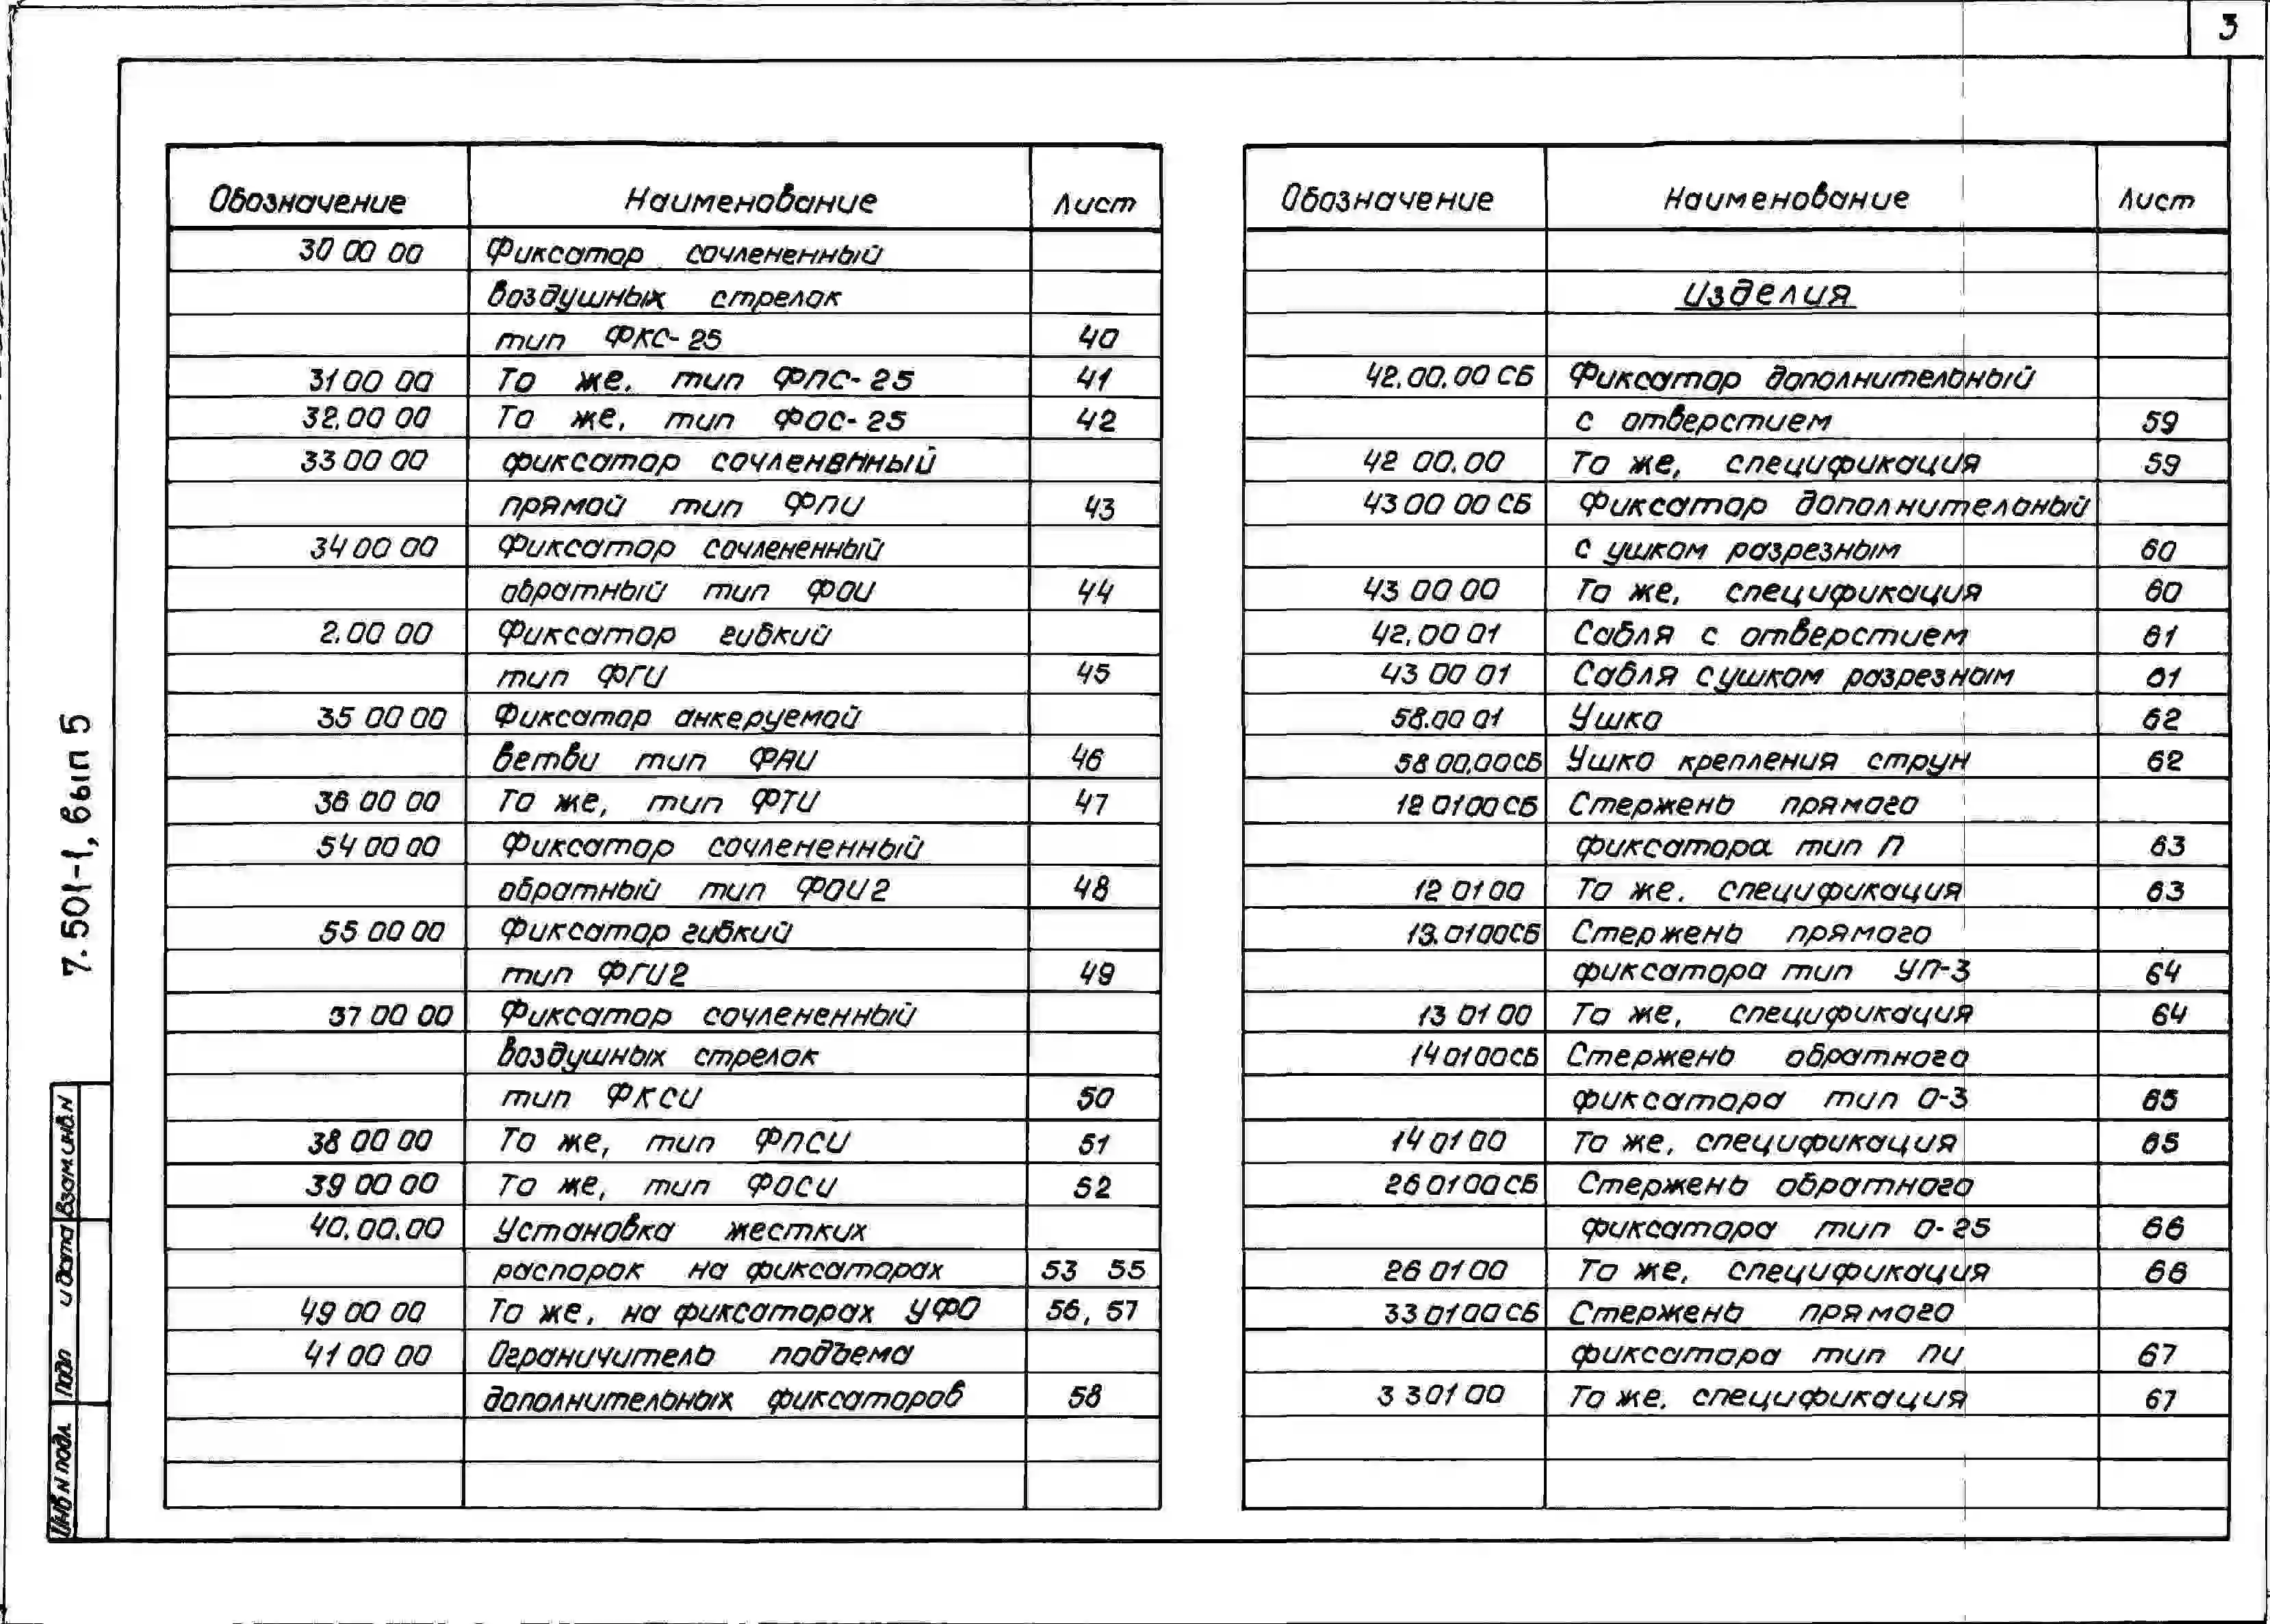 3
Обозначение Наименование Лист
30 00 00 Фиксатор сочлененный
воздушных стрелок
тип ФКС-25 40
31 00 00 То же, тип ФПС-25 41
32.00 00 То же, тип ФОС-25 42
33 00 00 фиксатор сочлененный
прямой тип ФПИ 43
34 00 00 Фиксатор сочлененный
обратный тип ФОИ 44
2.00 00 Фиксатор гибкий
тип ФГИ 45
35 00 00 Фиксатор анкеруемой
ветви тип ФАИ 46
36 00 00 То же, тип ФТИ 47
54 00 00 Фиксатор сочлененный
обратный тип ФОИ2 48
55 00 00 Фиксатор гибкий
тип ФГИ2 49
37 00 00 Фиксатор сочлененный
воздушных стрелок
тип ФКСИ 50
38 00 00 То же, тип ФПСИ 51
39 00 00 То же, тип ФОСИ 52
40.00.00 Установка жестких
распорок на фиксаторах 53 55
49 00 00 То же, на фиксаторах УФО 56, 57
41 00 00 Ограничитель подъема
дополнительных фиксаторов 58
Обозначение Наименование Лист
Изделия
42.00.00 СБ Фиксатор дополнительный
с отверстием 59
42 00.00 То же, спецификация 59
43 00 00 СБ Фиксатор дополнительный
с ушком разрезным 60
43 00 00 То же, спецификация 60
42.00 01 Сабля с отверстием 61
43 00 01 Сабля с ушком разрезным 61
58.00 01 Ушко 62
58 00.00 СБ Ушко крепления струн 62
12 01 00 СБ Стержень прямого
фиксатора тип П 63
12 01 00 То же. спецификация 63
13.01 00 СБ Стержень прямого
фиксатора тип УП-3 64
13 01 00 То же, спецификация 64
14 01 00 СБ Стержень обратного
фиксатора тип О-3 65
14 01 00 То же, спецификация 65
26 01 00 СБ Стержень обратного
фиксатора тип О-25 66
26 01 00 То же, спецификация 66
33 01 00 СБ Стержень прямого
фиксатора тип ПИ 67
33 01 00 То же. спецификация 67
7.501-1, вып 5
Взам инв.N
Подп и дата
Инв N подл